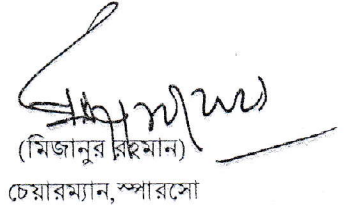 (মিজানুর রহমান)
চেয়ারম্যান, স্পারসো